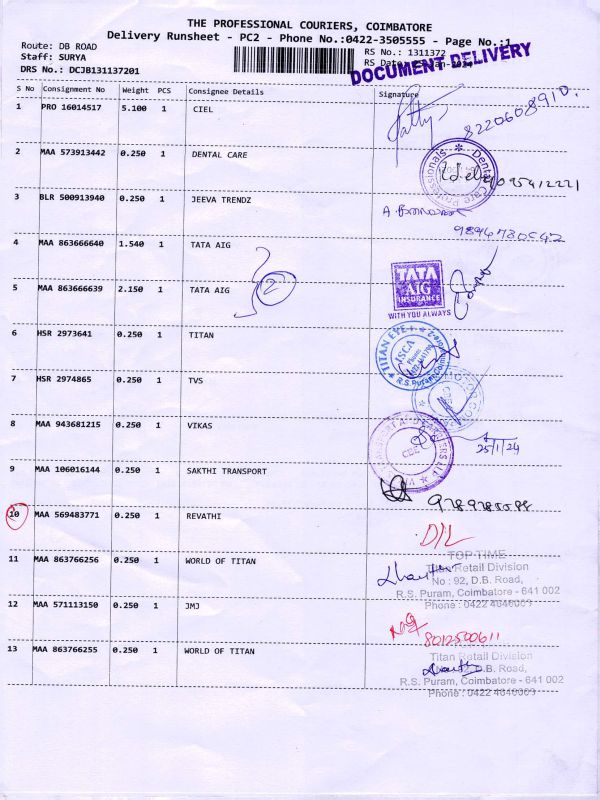 THE PROFESSIONAL COURIERS, COIMBATORE
Delivery Runsheet - PC2 - Phone No.:0422-3505555 - Page No.:1
Route: DB ROAD
RS No.: 1311372
Staff: SURYA
RS Date
DOCUMENT DELIVERY
DRS No.: DCJB131137201
S No Consignment No Weight PCS Consignee Details Signature
1 PRO 16014517 5.100 1 CIEL
8220608910.
2 MAA 573913442 0.250 1 DENTAL CARE
Dental Care Professionals
3 BLR 500913940 0.250 1 JEEVA TRENDZ
9894730542
4 MAA 863666640 1.540 1 TATA AIG
TATA AIG INSURANCE
WITH YOU ALWAYS
2
5 MAA 863666639 2.150 1 TATA AIG
6 HSR 2973641 0.250 1 TITAN
TITAN EYE+
R.S. Puram
7 HSR 2974865 0.250 1 TVS
8 MAA 943681215 0.250 1 VIKAS
25/1/24
9 MAA 106016144 0.250 1 SAKTHI TRANSPORT
10 MAA 569483771 0.250 1 REVATHI
D/L
11 MAA 863766256 0.250 1 WORLD OF TITAN
TOP TIME
Titan Retail Division
No : 92, D.B. Road,
R.S. Puram, Coimbatore - 641 002
Phone : 0422 4646009
12 MAA 571113150 0.250 1 JMJ
8012500611
13 MAA 863766255 0.250 1 WORLD OF TITAN
Titan Retail Division
D.B. Road,
R.S. Puram, Coimbatore - 641 002
Phone : 0422 4646009